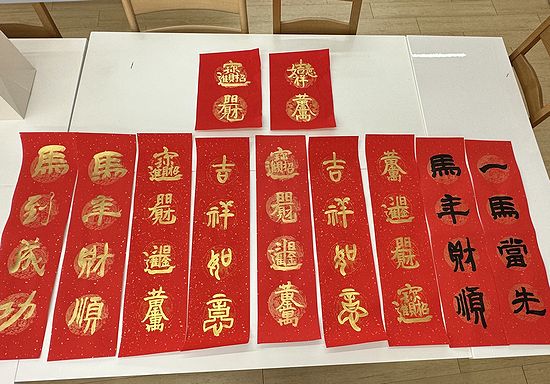 吉祥如意 黃金萬兩
招財進寶
一馬當先
馬年財順
黃金萬兩 招財進寶
吉祥如意
招財進寶 黃金萬兩
吉祥如意
招財進寶 黃金萬兩
馬年財順
馬到成功